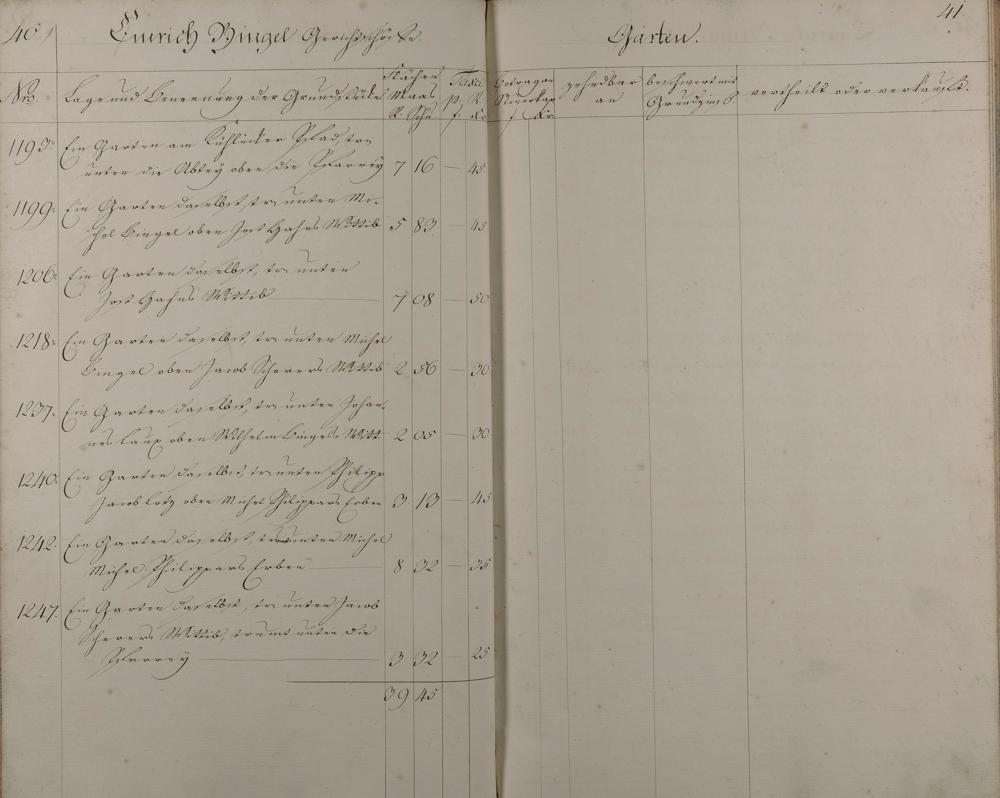 40.
Emrich Bingel Gerichtsschöffe.
Gärten.
41
Nro.
Lage und Benennung der Grundstücke
Flächen Maas
R. Sch
Taxa p. R.
f. Kr
f Kr
zehndbar an
beschwert mit Grundzins
vertheilt oder verkauft.
1193. Ein Garten am Pfad, tr.
unten die Abtey oben die Pfarrey 7 16 — 45
1199. Ein Garten daselbst, tr. unten Mi-
chel Bingel oben Jost Hahns Wittib 5 83 — 45
1206. Ein Garten daselbst, tr. unten
Jost Hahns Wittib 7 08 — 50
1218. Ein Garten daselbst, tr. unten Michel
Bingel oben Jacob Scherers Wittib 2 56 — 30
1237. Ein Garten daselbst, tr. unten Johan-
nes Laux oben Wilhelm Bingels Witt. 2 05 — 30
1240. Ein Garten daselbst, tr. unten Philipp
Jacob Lotz oben Michel Philippars Erben 3 13 — 45
1242. Ein Garten daselbst, tr. unten Michel
Michel Philippars Erben 8 32 — 35
1247. Ein Garten daselbst, tr. unten Jacob
Scherers Wittib, unten die
Pfarrey 3 32 — 25
39 45